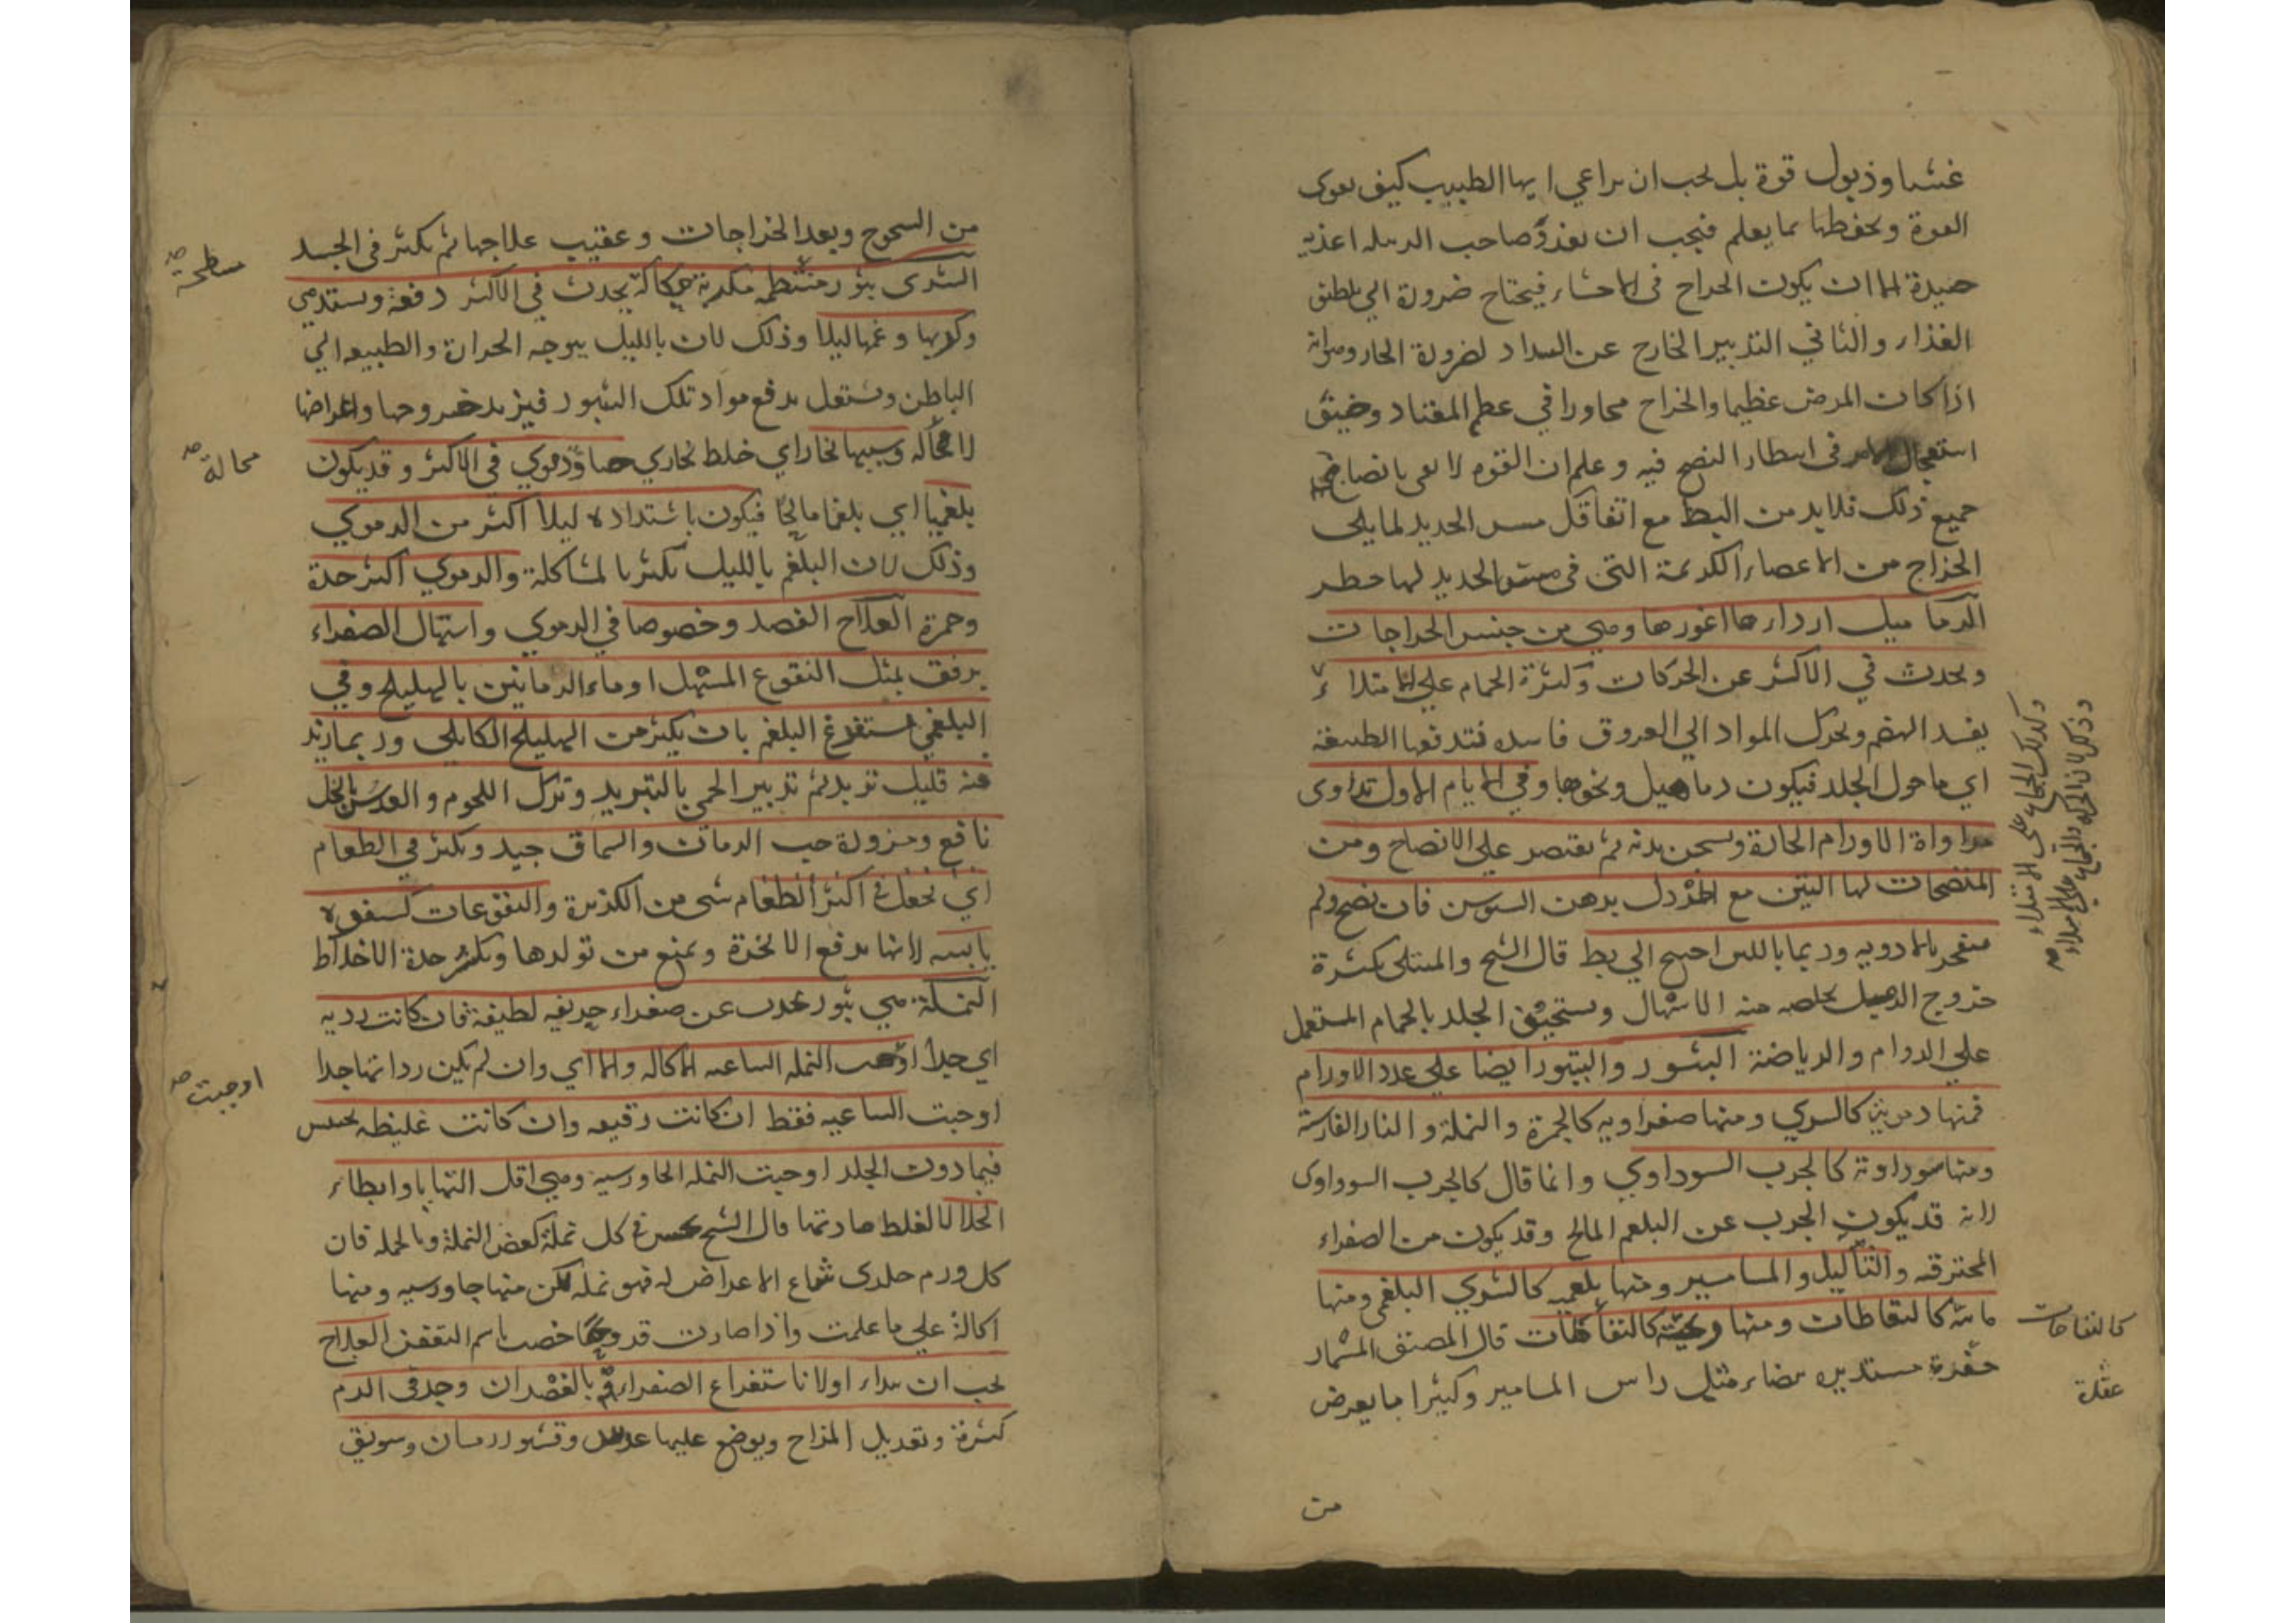 غشيا وذبول قوة بل يجب ان يراعي ايها الطبيب كيف تقوى
القوة وتحفظها بما يعلم فيجب ان يغذو صاحب الدبيله اغذية
جيدة الا ان يكون الخراج في الاحشاء فيحتاج ضرورة الي تلطيف
الغذاء والثاني التدبير الخارج عن السداد لضرورة
اذا كان المرض عظيما والخراج مجاورا في عظم المقتاد وضيق
استعجال في انتظار النضج فيه وعلم ان القوة لا تفي بانضاجه
جميع ذلك فلا بد من البط مع اتقا كل مس الحديد لما يلي
الخراج من الاعضاء الكريمة التي في مس الحديد لها خطر
الدماميل ارداءها اغورها وهي من جنس الخراجات
ويحدث في الاكثر عن الحركات وكثرة الحمام علي الامتلاء
يفسد الهضم وتحرك المواد الي العروق فاسده فتدفعها الطبيعة
اي ما حول الجلد فيكون دماميل ونحوها وفي الايام الاول تداوى
مداواة الاورام الحارة ويسخن بدنه ثم يقتصر علي الانضاج ومن
المنضجات لها التين مع الخردل بدهن السوسن فان نضج ولم
ينفجر بالادوية وربما باللبن احتيج الي بط قال الشيخ والمبتلى بكثرة
خروج الدمل يخلصه منه الاسهال وتسخيف الجلد بالحمام المستعمل
علي الدوام والرياضة البثور والبثور ايضا علي عدد الاورام
فمنها دموية كالشري ومنها صفراويه كالجمرة والنملة والنار الفارسية
ومنها سوداوية كالجرب السوداوي وانما قال كالجرب السوداوى
لانه قد يكون الجرب عن البلغم المالح وقد يكون من الصفراء
المحترقه والثآليل والمسامير ومنها بلغميه كالشري البلغمي ومنها
مائية كالنفاطات ومنها ريحية كالنفاخات قال المصنف المسمار
عقدة مستديره بيضاء مثل راس المسامير وكثيرا ما يعرض
من
وكذلك الجماع علي الامتلاء
وذلك لان الحركة والجماع علي الامتلاء
كالنفاخات
عقدة
من السحوج وبعد الخراجات وعقيب علاجها ثم يكثر في الجسد
الشرى بثور منتظمه مكربة حكاكة يحدث في الاكثر دفعة ويستدمي
وكربها وغمها ليلا وذلك لان بالليل يتوجه الحرارة والطبيعه الي
الباطن وتشتغل بدفع مواد تلك البثور فيزيد خروجها واعراضها
لا محاله وسببها بخار اي خلط بخاري حاد دموي في الاكثر وقد يكون
بلغميا اي بلغما مالحا فيكون باشتداده ليلا اكثر من الدموي
وذلك لان البلغم بالليل يكثر بالمشاكلة والدموي اكثر حدة
وحمرة العلاج الفصد وخصوصا في الدموي واسهال الصفراء
برفق بمثل النقوع المسهل او ماء الرمانين بالهليلج وفي
البلغمي يستفرغ البلغم بان يكثر من الهليلج الكابلي وربما زيد
فيه قليل تربد ثم تدبير الحمي بالتبريد وترك اللحوم والعدس بالخل
نافع ومزورة حب الرمان والسماق جيد ويكثر في الطعام
اي يجعل في اكثر الطعام شي من الكزبرة والنقوعات كسفوفه
يابسه لانها يدفع الابخرة ويمنع من تولدها ويكثر حدة الاخلاط
النملة هي بثور تحدث عن صفراء حريفه لطيفة فان كانت رديه
اي جدا اوجبت النمله الساعيه الاكاله والا اي وان لم يكن رداءتها جدا
اوجبت الساعيه فقط ان كانت رقيقه وان كانت غليظه تحتبس
فيما دون الجلد اوجبت النمله الجاورسية وهي اقل التهابا وابطاء
انحلالا لغلظ مادتها قال الشيخ في كل نملة كعض النملة وبالجمله فان
كل ورم جلدى ساع لا عرض له فهو نمله لكن منها جاورسيه ومنها
اكالة علي ما علمت واذا صارت قروحا خصت باسم التعفن العلاج
يجب ان يبداء اولا باستفراغ الصفراء ثم بالفصد ان وجد في الدم
كثرة وتعديل المزاج ويوضع عليها عدس وقشور رمان وسويق
سطحة
محالة
اوجبت